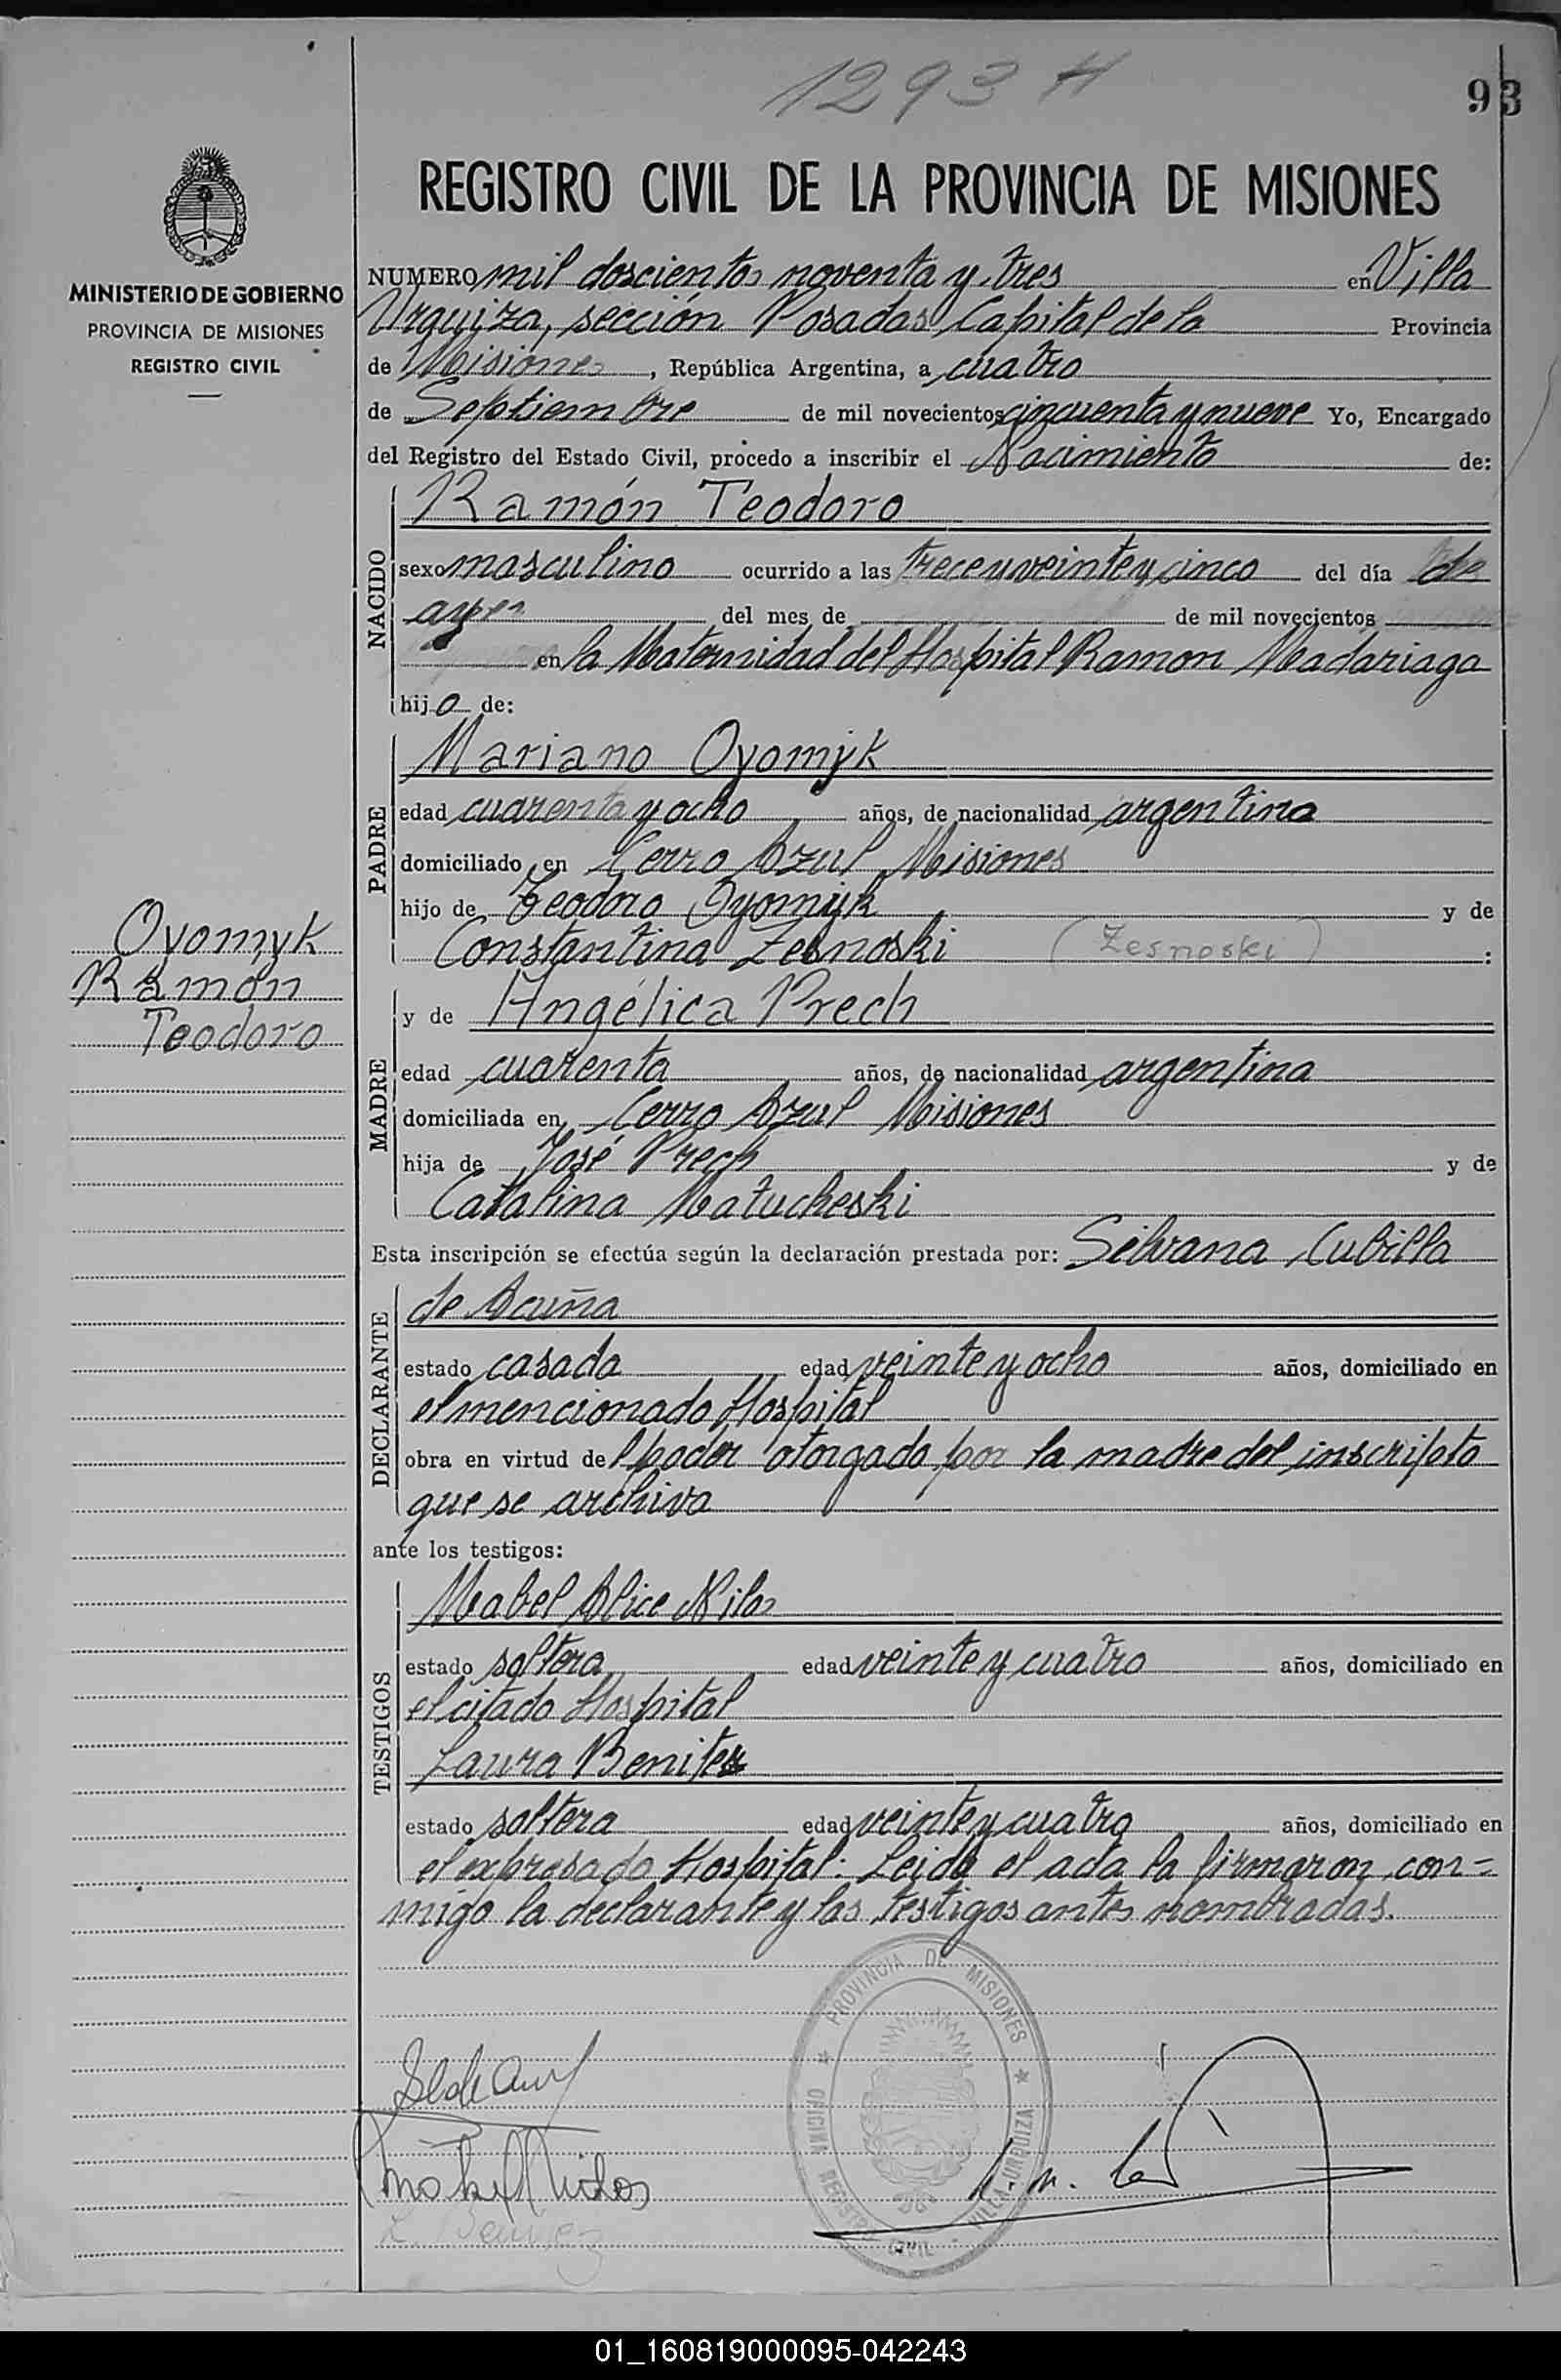 1293 H
93
MINISTERIO DE GOBIERNO
PROVINCIA DE MISIONES
REGISTRO CIVIL
REGISTRO CIVIL DE LA PROVINCIA DE MISIONES
NUMERO mil doscientos noventa y tres en Villa
Urquiza, sección Posadas Capital de la Provincia
de Misiones, República Argentina, a cuatro
de Septiembre de mil novecientos cincuenta y nueve Yo, Encargado
del Registro del Estado Civil, procedo a inscribir el Nacimiento de:
NACIDO
Ramón Teodoro
sexo masculino ocurrido a las trece y veinte y cinco del día de
ayer del mes de de mil novecientos
en la Maternidad del Hospital Ramon Madariaga
hijo de:
PADRE
Mariano Oyomyk
edad cuarenta y ocho años, de nacionalidad argentina
domiciliado en Cerro Azul Misiones
hijo de Teodoro Oyomyk y de
Constantina Zesnoski (Zesnoski) :
Oyomyk
Ramón
Teodoro
MADRE
y de Angélica Prech
edad cuarenta años, de nacionalidad argentina
domiciliada en Cerro Azul Misiones
hija de José Prech y de
Catalina Matucheski
Esta inscripción se efectúa según la declaración prestada por: Silvana Cubilla
DECLARANTE
de Acuña
estado casada edad veinte y ocho años, domiciliado en
el mencionado Hospital
obra en virtud del poder otorgado por la madre del inscripto
que se archiva
ante los testigos:
TESTIGOS
Mabel Alice Nilos
estado soltera edad veinte y cuatro años, domiciliado en
el citado Hospital
Laura Benitez
estado soltera edad veinte y cuatro años, domiciliado en
el expresado Hospital: Leida el acta la firmaron con=
migo la declarante y las testigos antes nombradas.
PROVINCIA DE MISIONES
OFICINA REGISTRO CIVIL - VILLA URQUIZA
L. Benitez
01_160819000095-042243